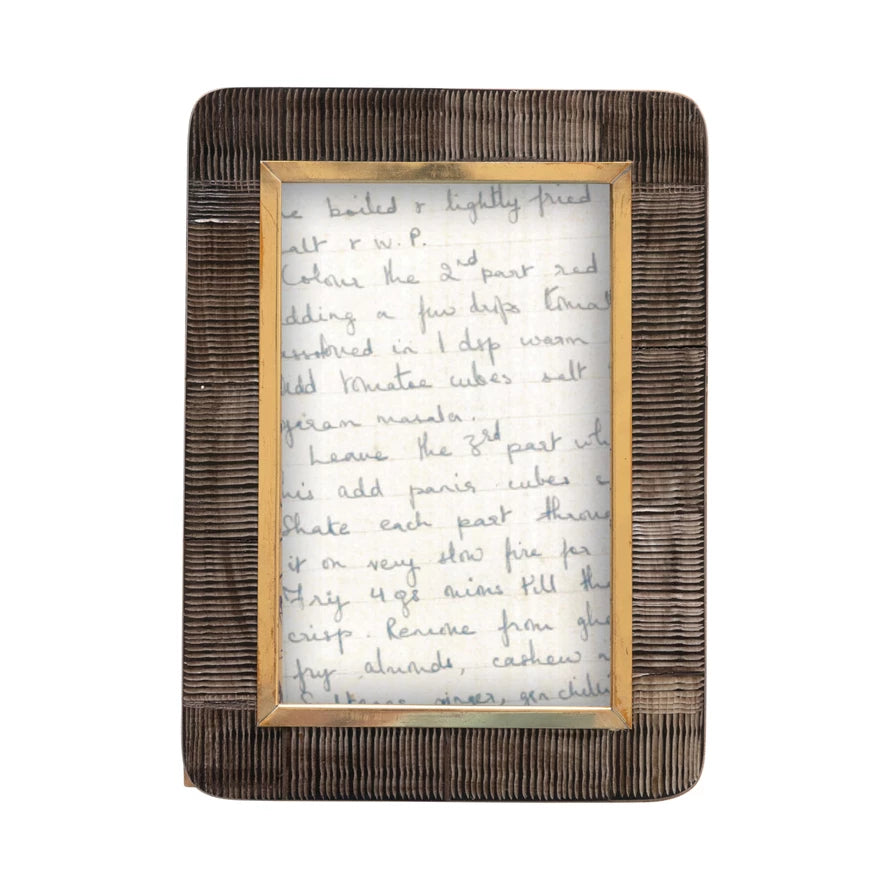 e boiled & lightly fried
alt & W.P.
Colour the 2nd part red
dding a few drps tomat
issolved in 1 dsp warm
dd tomatoe cubes salt
garam masala.
Leave the 3rd part wh
his add panir cubes
Shake each part throu
it on very slow fire for
Fry 4 gs onions till the
crisp. Remove from ghe
fry almonds, cashew n
Sultanas ginger, grn chilli